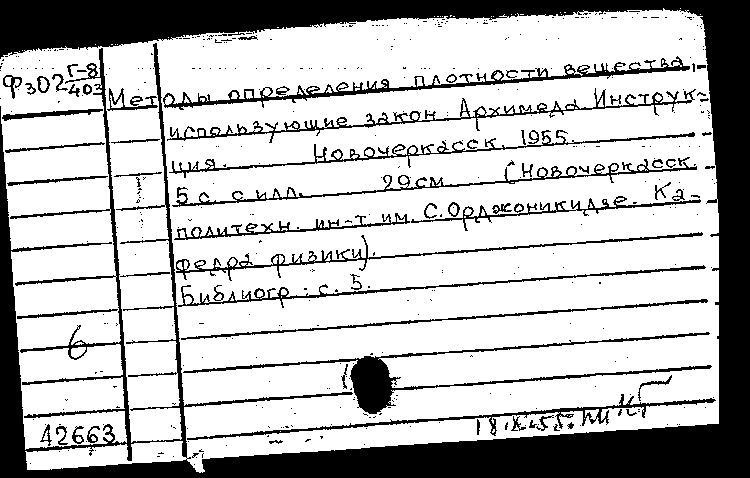 Фз02 Г-8/403
Методы определения плотности вещества,
использующие закон Архимеда. Инструк-
ция. Новочеркасск. 1955.
5 с. с илл. 29см. (Новочеркасск.
политехн. ин-т им. С. Орджоникидзе. Ка-
федра физики).
Библиогр.: с. 5.
6
12663
18.X.55г.